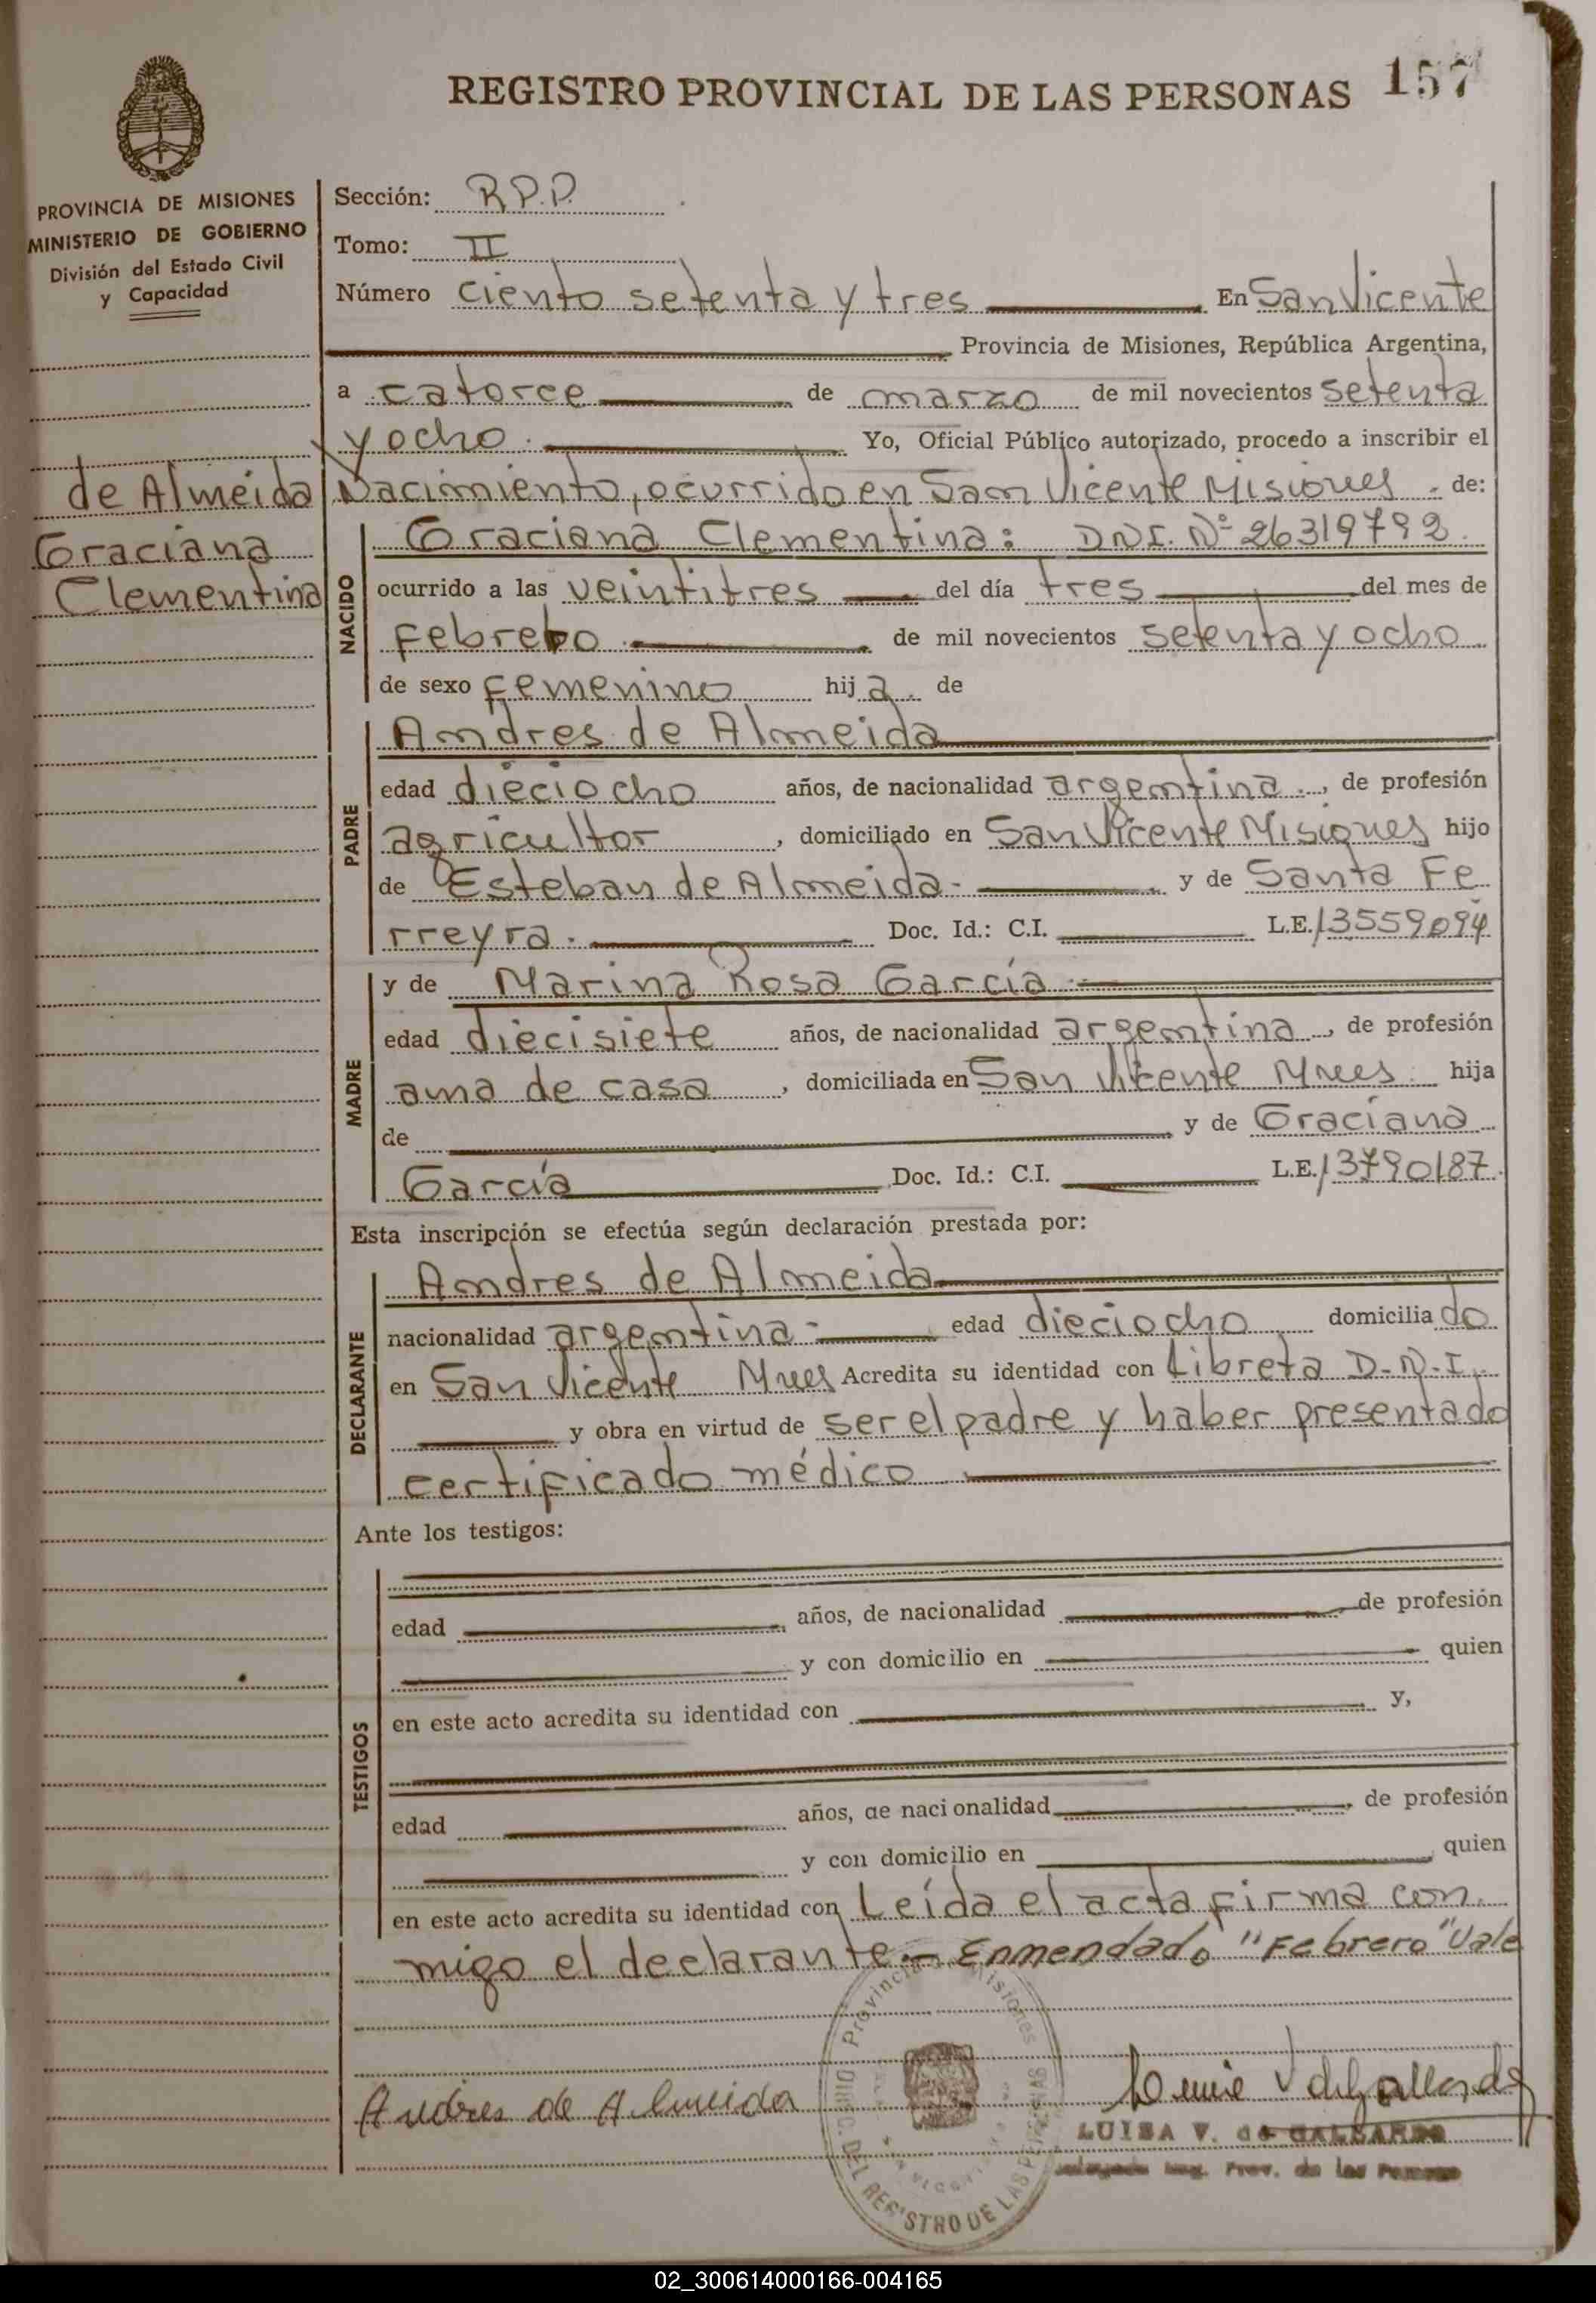 REGISTRO PROVINCIAL DE LAS PERSONAS 157
PROVINCIA DE MISIONES
MINISTERIO DE GOBIERNO
División del Estado Civil
y Capacidad
de Almeida
Graciana
Clementina
Sección: R.P.P.
Tomo: II
Número ciento setenta y tres En San Vicente
Provincia de Misiones, República Argentina,
a catorce de marzo de mil novecientos setenta
y ocho. Yo, Oficial Público autorizado, procedo a inscribir el
Nacimiento, ocurrido en San Vicente Misiones. de:
NACIDO
Graciana Clementina: DNI. Nº 26319792
ocurrido a las veintitres del día tres del mes de
Febrero de mil novecientos setenta y ocho
de sexo femenino hija. de
PADRE
Andres de Almeida
edad dieciocho años, de nacionalidad argentina., de profesión
agricultor, domiciliado en San Vicente Misiones hijo
de Esteban de Almeida- y de Santa Fe
rreyra. Doc. Id.: C.I. L.E. 13559094
MADRE
y de Marina Rosa García
edad diecisiete años, de nacionalidad argentina, de profesión
ama de casa, domiciliada en San Vicente Mnes hija
de y de Graciana
García Doc. Id.: C.I. L.E. 13790187
Esta inscripción se efectúa según declaración prestada por:
DECLARANTE
Andres de Almeida
nacionalidad argentina- edad dieciocho domiciliado
en San Vicente Mnes Acredita su identidad con Libreta D.N.I.
y obra en virtud de ser el padre y haber presentado
certificado médico
Ante los testigos:
TESTIGOS
edad años, de nacionalidad de profesión
y con domicilio en quien
en este acto acredita su identidad con y,
edad años, de nacionalidad, de profesión
y con domicilio en quien
en este acto acredita su identidad con Leída el acta firma con
migo el declarante.- Enmendado "Febrero" Vale
Andres de Almeida
Provincia Misiones
DIREC. DEL REGISTRO DE LAS PERSONAS
LUISA V. de GALLARDO
Reg. Prov. de las Personas
02_300614000166-004165